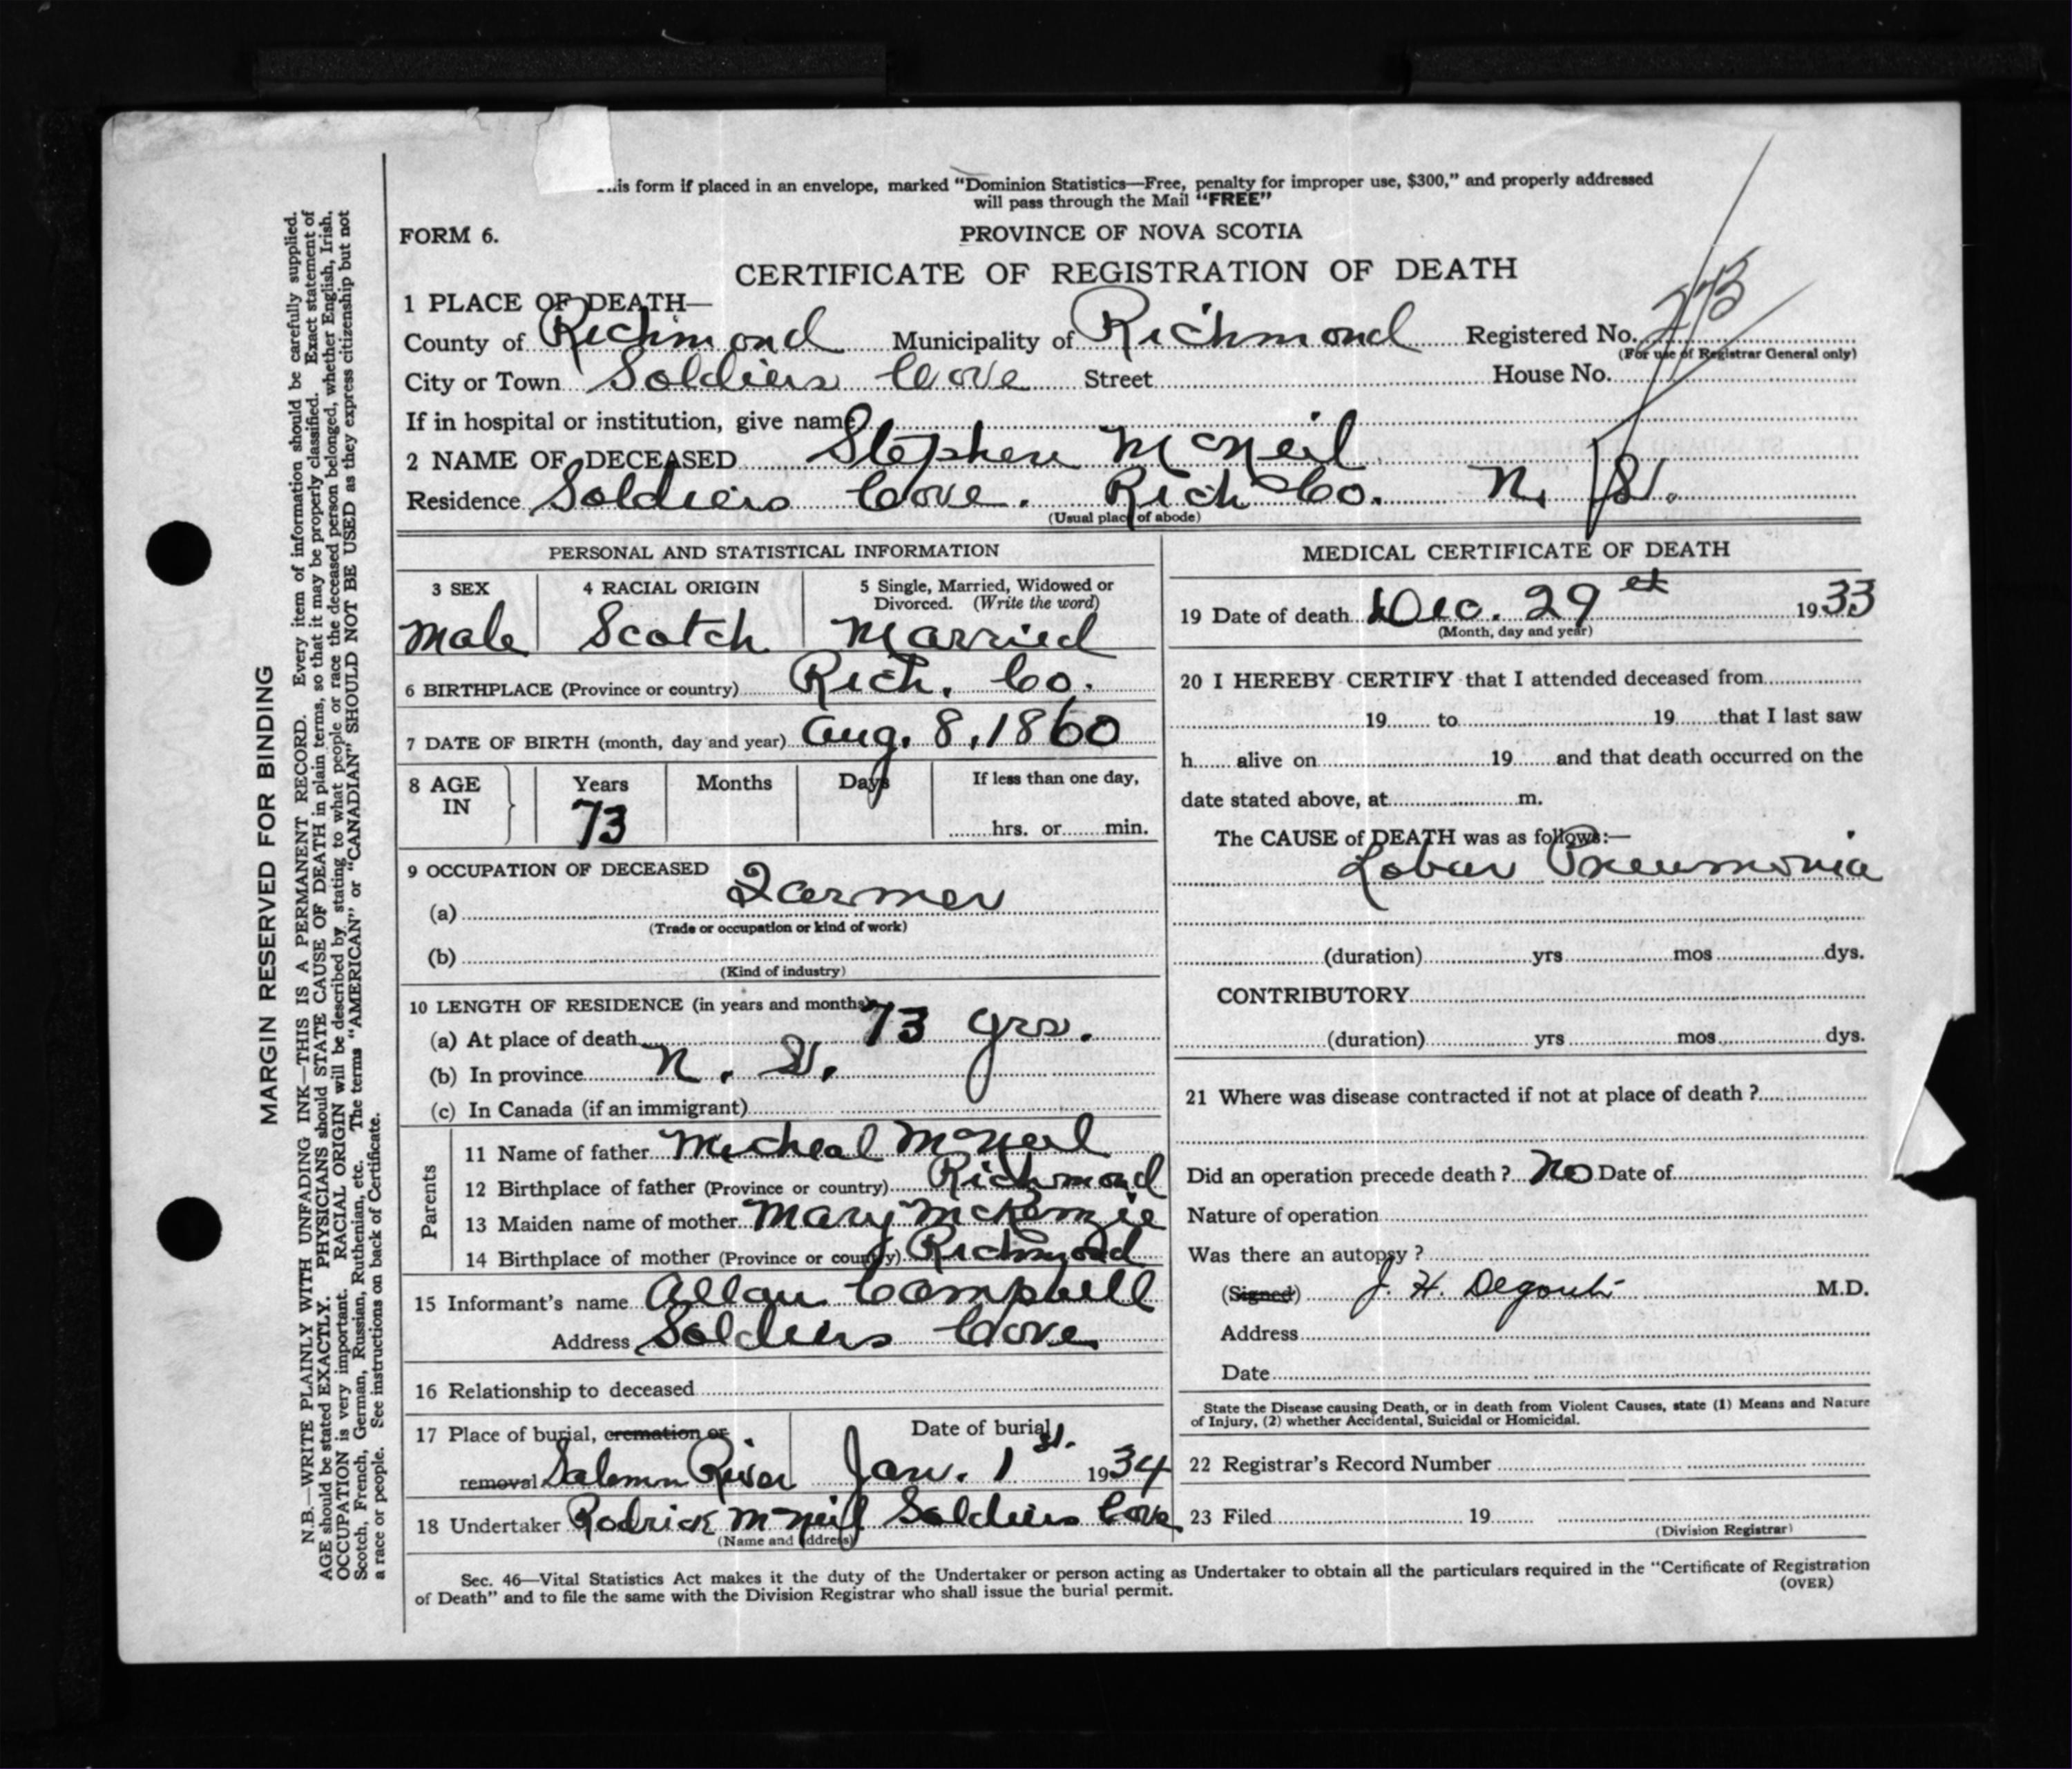 This form if placed in an envelope, marked "Dominion Statistics—Free, penalty for improper use, $300," and properly addressed
will pass through the Mail "FREE"
FORM 6.
PROVINCE OF NOVA SCOTIA
CERTIFICATE OF REGISTRATION OF DEATH
1 PLACE OF DEATH—
County of Richmond Municipality of Richmond Registered No. 273
(For use of Registrar General only)
City or Town Soldiers Cove Street House No.
If in hospital or institution, give name
2 NAME OF DECEASED Stephen McNeil
Residence Soldiers Cove. Rich Co. N. S.
(Usual place of abode)
PERSONAL AND STATISTICAL INFORMATION
3 SEX 4 RACIAL ORIGIN 5 Single, Married, Widowed or
Divorced. (Write the word)
Male Scotch Married
6 BIRTHPLACE (Province or country) Rich. Co.
7 DATE OF BIRTH (month, day and year) Aug. 8, 1860
8 AGE IN Years Months Days If less than one day,
73 hrs. or min.
9 OCCUPATION OF DECEASED
(a) Farmer
(Trade or occupation or kind of work)
(b)
(Kind of industry)
10 LENGTH OF RESIDENCE (in years and months)
(a) At place of death 73 yrs.
(b) In province N. S.
(c) In Canada (if an immigrant)
Parents
11 Name of father Micheal McNeil
12 Birthplace of father (Province or country) Richmond
13 Maiden name of mother Mary McKenzie
14 Birthplace of mother (Province or country) Richmond
15 Informant's name Allan Campbell
Address Soldiers Cove
16 Relationship to deceased
17 Place of burial, cremation or Date of burial
removal Salmon River Jan. 1 st. 1934
18 Undertaker Rodrick McNeil Soldiers Cove
(Name and address)
MEDICAL CERTIFICATE OF DEATH
19 Date of death Dec. 29 1933
(Month, day and year)
20 I HEREBY CERTIFY that I attended deceased from
19 to 19 that I last saw
h alive on 19 and that death occurred on the
date stated above, at m.
The CAUSE of DEATH was as follows:—
Lobar Pneumonia
(duration) yrs mos dys.
CONTRIBUTORY
(duration) yrs mos dys.
21 Where was disease contracted if not at place of death ?
Did an operation precede death ? No Date of
Nature of operation
Was there an autopsy ?
(Signed) J. H. M.D.
Address
Date
State the Disease causing Death, or in death from Violent Causes, state (1) Means and Nature
of Injury, (2) whether Accidental, Suicidal or Homicidal.
22 Registrar's Record Number
23 Filed 19
(Division Registrar)
Sec. 46—Vital Statistics Act makes it the duty of the Undertaker or person acting as Undertaker to obtain all the particulars required in the "Certificate of Registration
of Death" and to file the same with the Division Registrar who shall issue the burial permit.
(OVER)
MARGIN RESERVED FOR BINDING
N.B.—WRITE PLAINLY WITH UNFADING INK—THIS IS A PERMANENT RECORD. Every item of information should be carefully supplied.
AGE should be stated EXACTLY. PHYSICIANS should STATE CAUSE OF DEATH in plain terms, so that it may be properly classified. Exact statement of
OCCUPATION is very important. RACIAL ORIGIN will be described by stating to what people or race the deceased person belonged, whether English, Irish,
Scotch, French, German, Russian, Ruthenian, etc. The terms "AMERICAN" or "CANADIAN" SHOULD NOT BE USED as they express citizenship but not
a race or people. See instructions on back of Certificate.